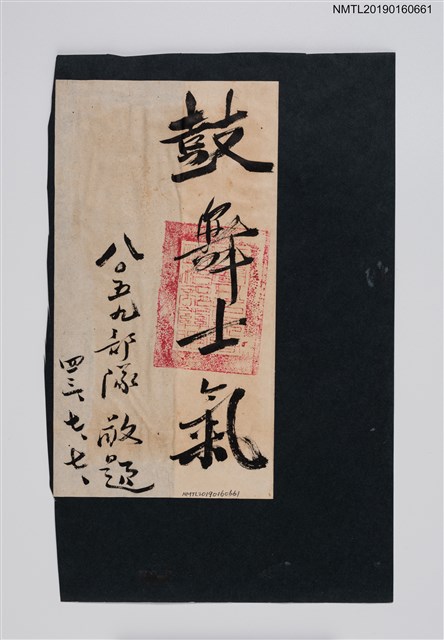 NMTL20190160661
鼓舞士氣
八〇五九部隊敬題
四三、七、七、
NMTL20190160661